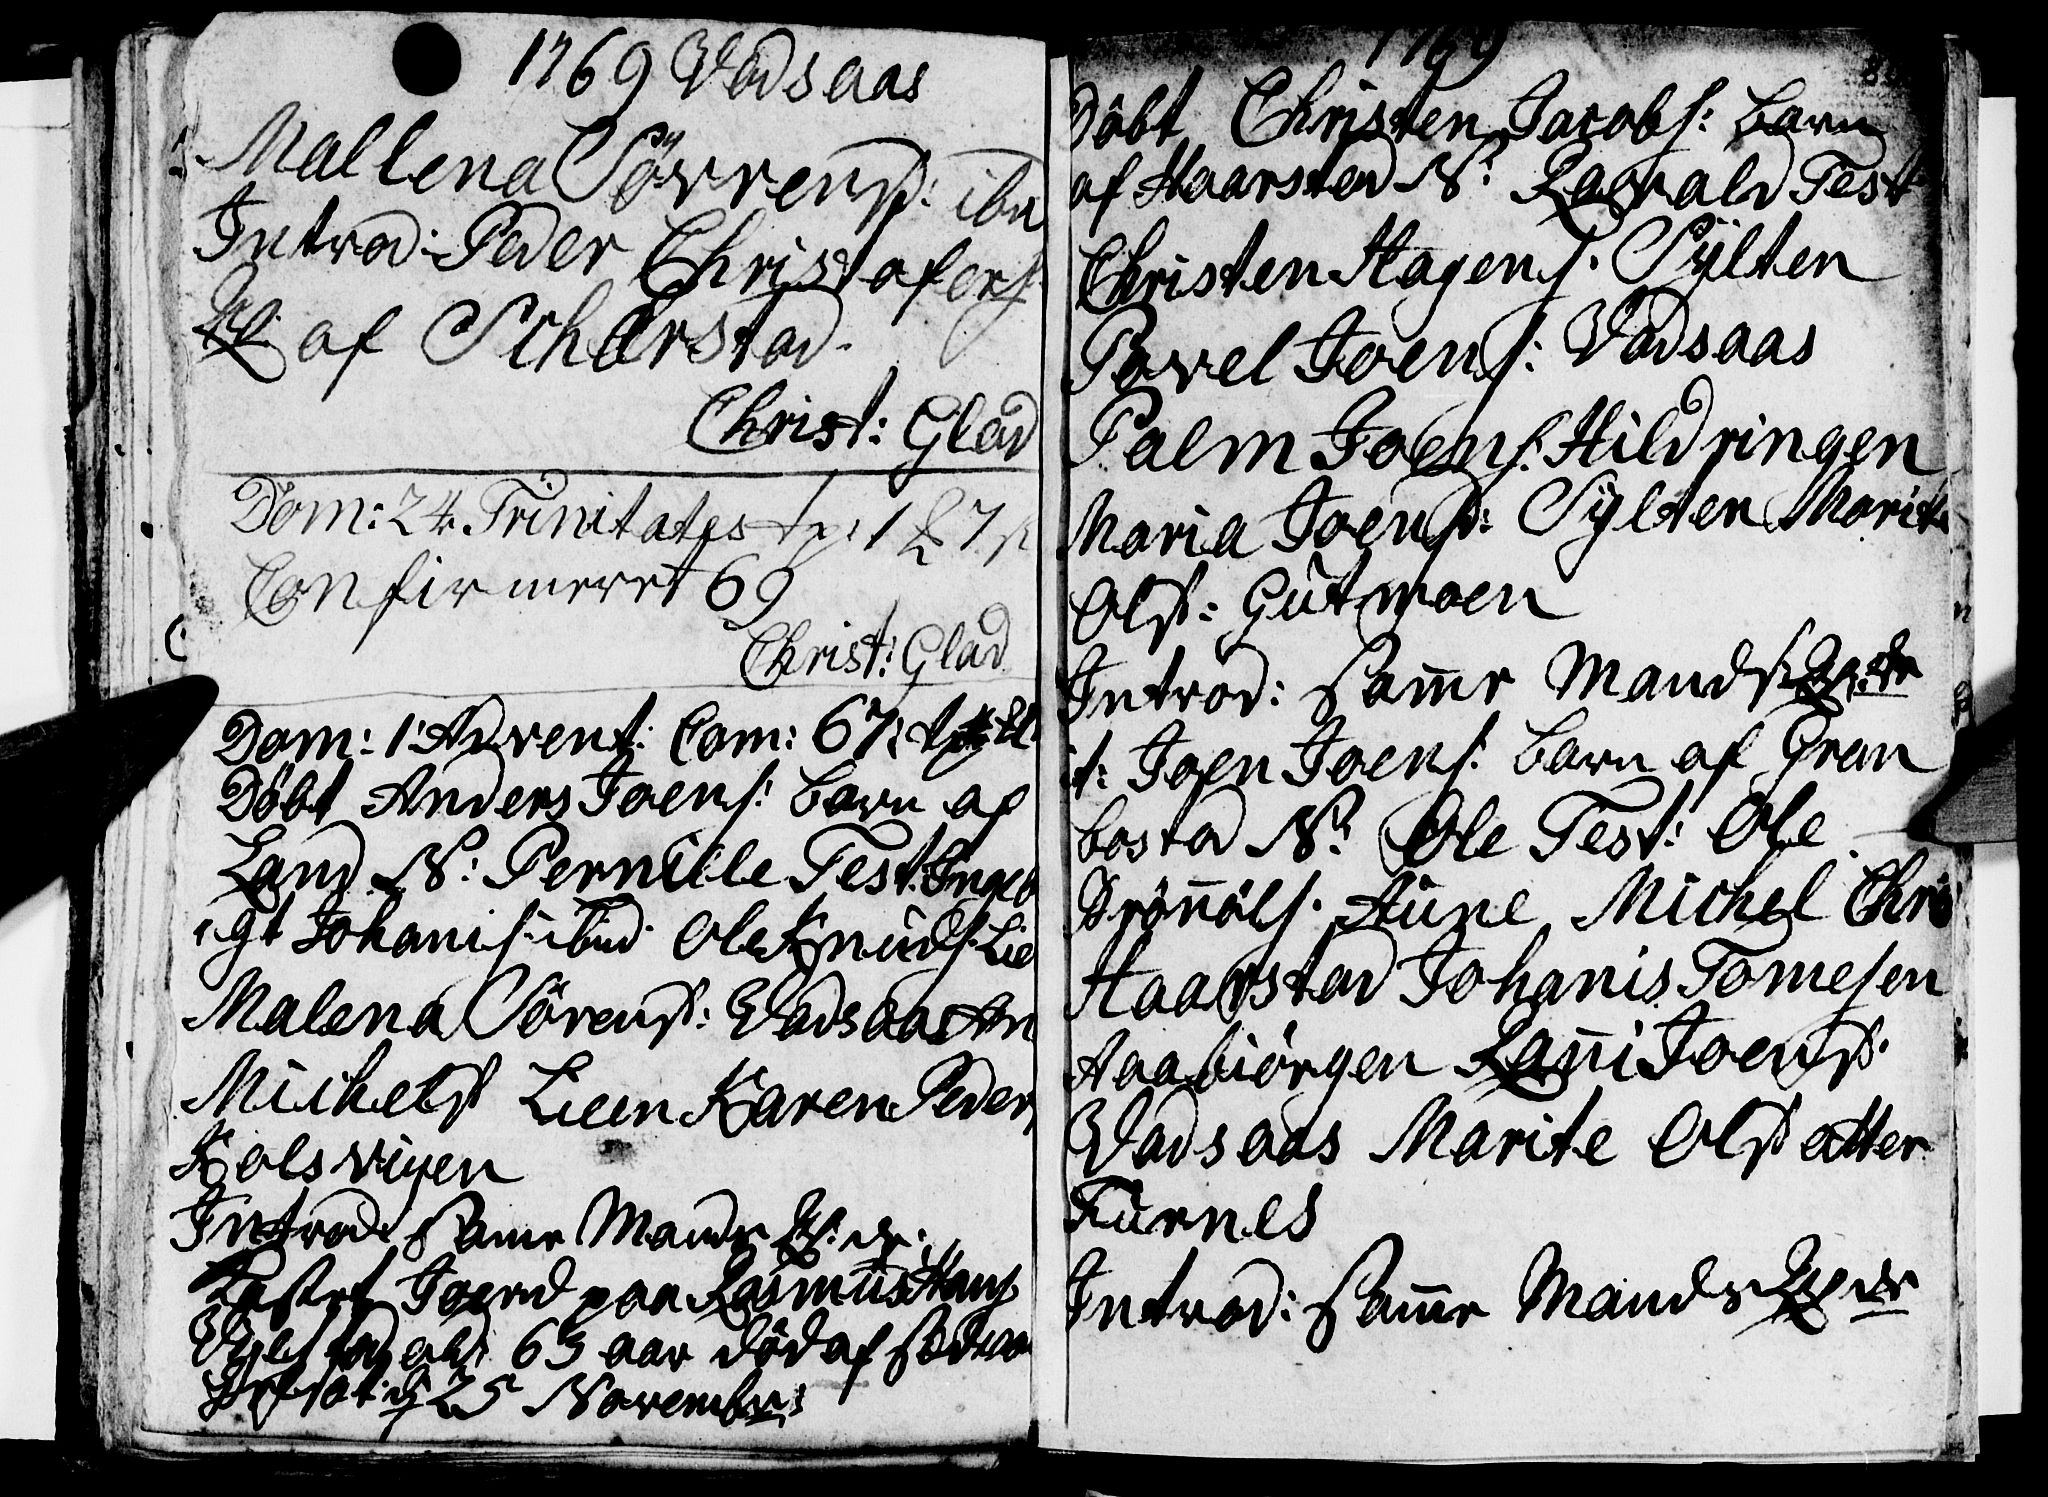 1769 Vadsaas
Mallena Sörrensd: ibn
Introd: Peder Christofers:
Q: af Scharstad.
Christ: Glad
Dom: 24 Trinitates
Confirmeret 69
Christ: Glad
Dom: 1 Advent: Com: 67:
Döbt Anders Joens: barn af
Land N: Pernille Test: Ingeb
rgt Johanis: ibid. Ole Knuds: Lie
Malena Sörensd: Vadsaas An
Michelsd Lien Karen Peders
Kolsvigen
Introd: samme Mands Q:
Kastet Joerd paa Rasmus Hans
ald: 63 aar död af
25 November
1769
Döbt Christen Jacobs: barn
af Haarsted N: Ragnald Test
Christen Hagens: Sylten
Pavel Joens: Vadsaas
Palm Joens: Hildringen
Maria Joensd: Sylten Marite
Olsd: Gutvoen
Introd: samme Mands
it: Joen Joens: barn af Gran
bosta N: Ole Test: Ole
Brönöls: Aune Michel Chris
Haarstad Johanis Tomesen
Aaabiörgen Lani Joensd:
Vadsaas Marite Olsd atter
Furnes
Introd: samme Mands